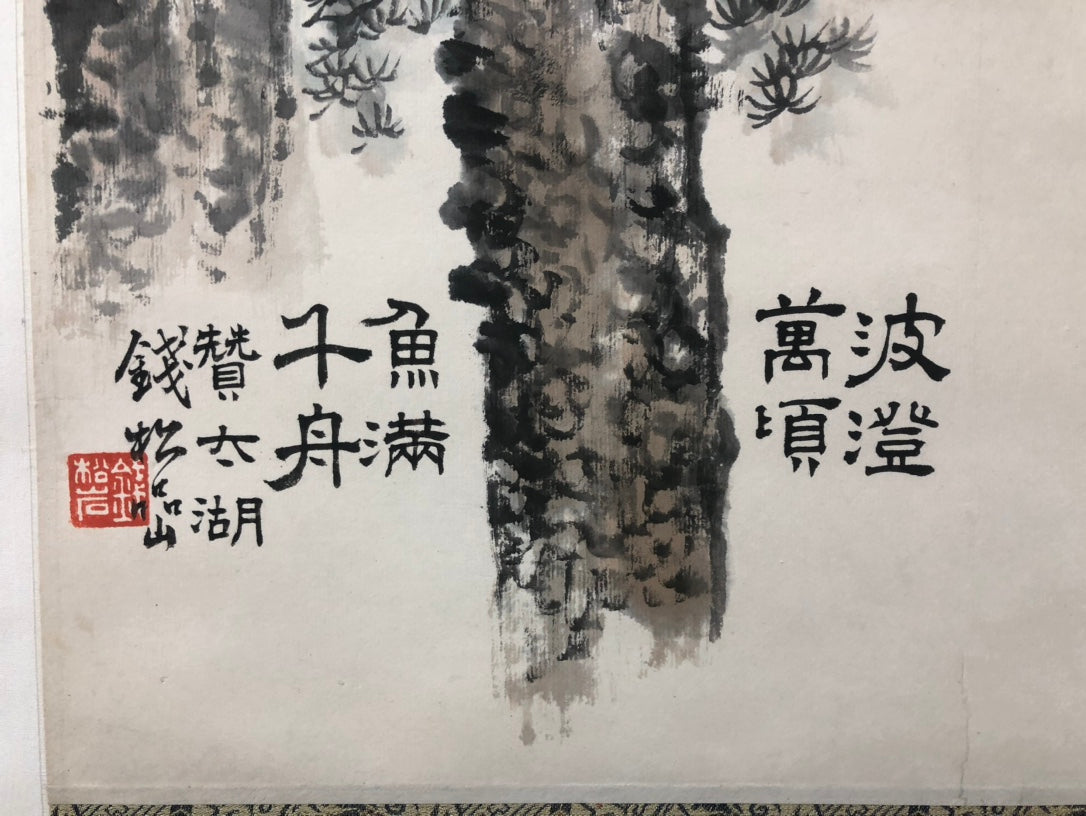 波澄
萬頃
魚滿
千舟
贊太湖
錢松喦
錢松喦